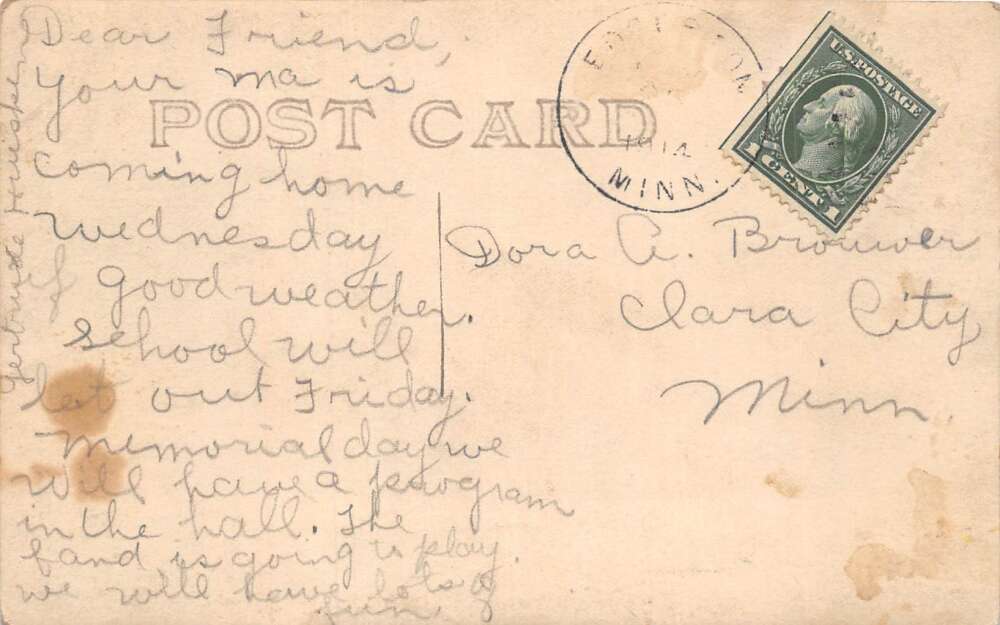 Dear Friend,
Your ma is
coming home
wednesday
if good weather.
School will
let out Friday.
Memorial day we
will have a program
in the hall. The
band is going to play.
we will have lots of
fun.
Gertrude
POST CARD
MINN.
1914
U.S. POSTAGE
1 CENT 1
Dora A. Brouwer
Clara City
Minn.